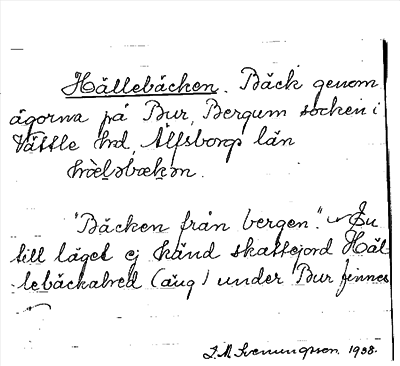 Hällebäcken. Bäck genom
ägorna på Bur, Bergum socken i
Vättle hd, Älfsborgs län
hæ̀lәbækәn.
"Bäcken från bergen." En
till läget ej känd skattejord Häl-
lebäckabred (äng) under Bur finnes
S. M. Svenungsson. 1938.